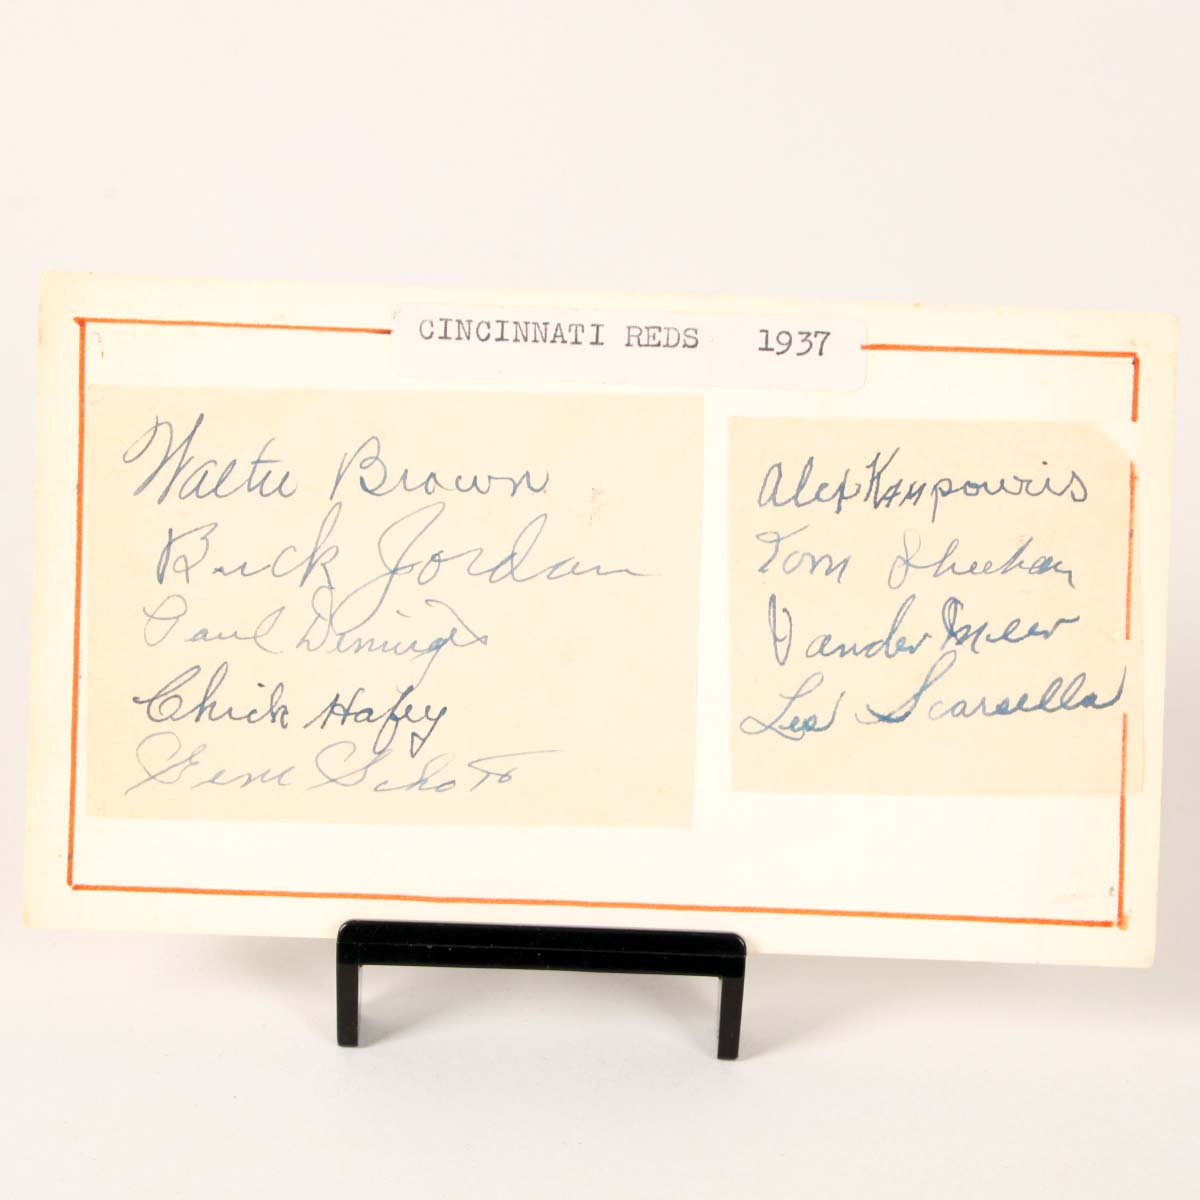 CINCINNATI REDS 1937
Walter Brown
Buck Jordan
Paul Derringer
Chick Hafey
Gene Schott
Alex Kampouris
Tom Sheehan
Vander Meer
Les Scarsella